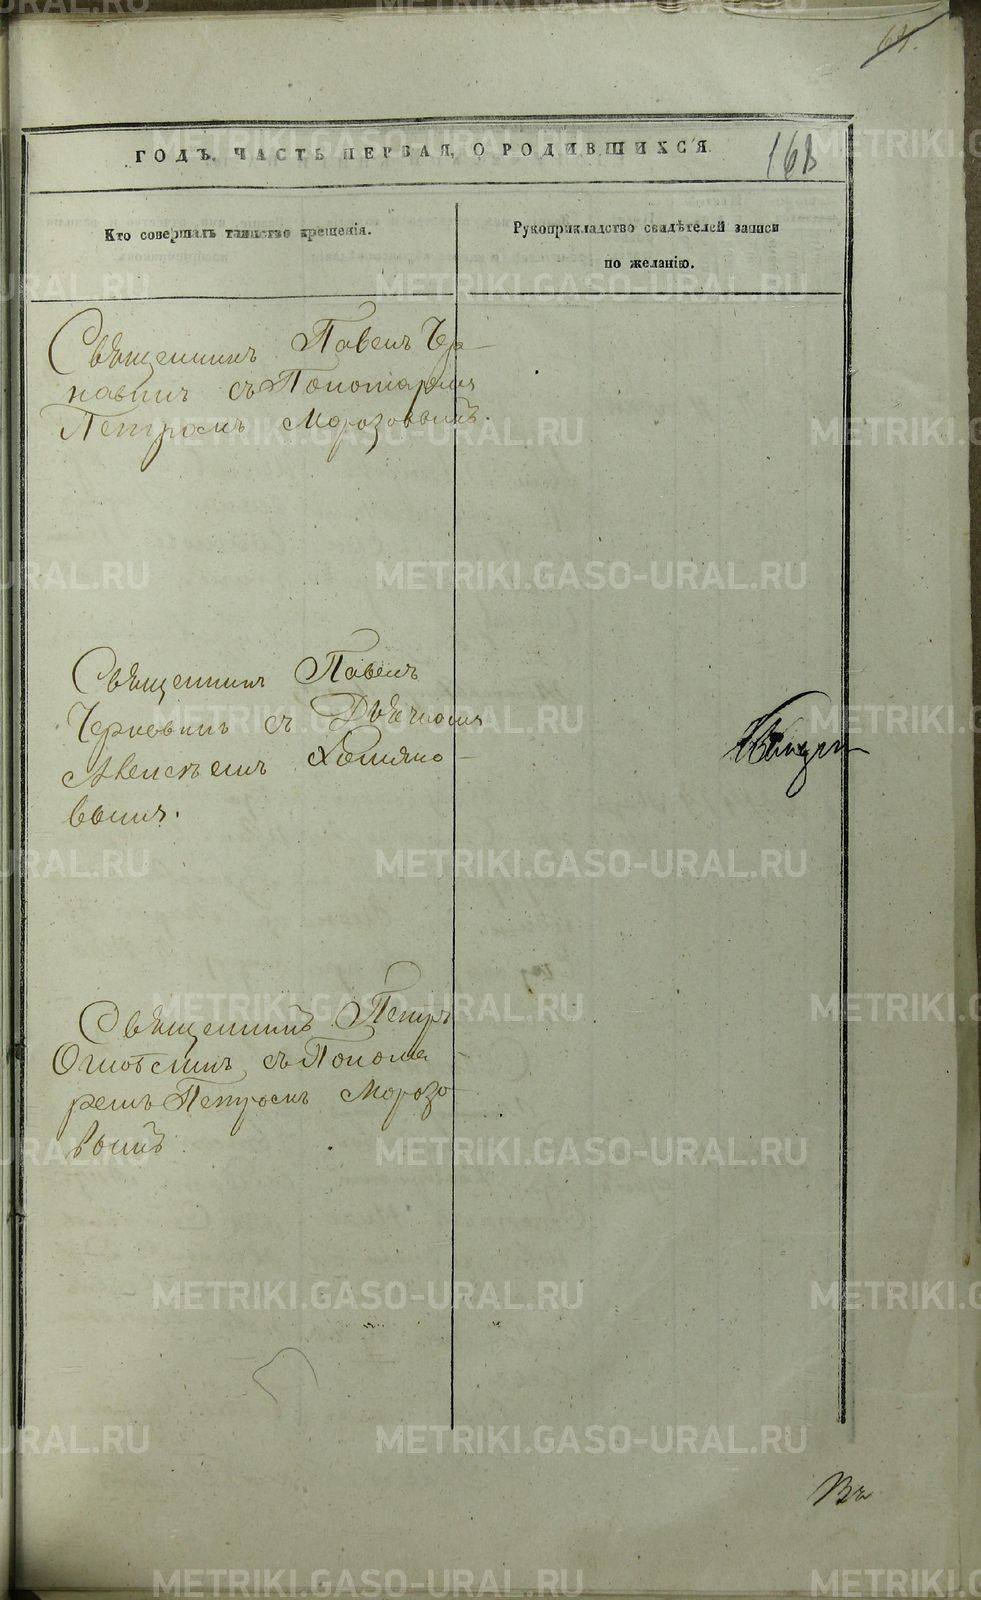 64.
ГОДЪ. ЧАСТЬ ПЕРВАЯ, О РОДИВШИХСЯ
168
Кто совершалъ таинство крещенія.
Рукоприкладство свидѣтелей записи
по желанію.
Священникъ Павелъ Чер-
навинъ съ Пономаремъ
Петромъ Морозовымъ.
Священникъ Павелъ
Чернавинъ съ Дьячкомъ
Алексѣемъ Хомяко-
вымъ.
Священникъ Петръ
съ Понома-
ремъ Петромъ Морозо-
вымъ.
Въ
METRIKI.GASO-URAL.RU